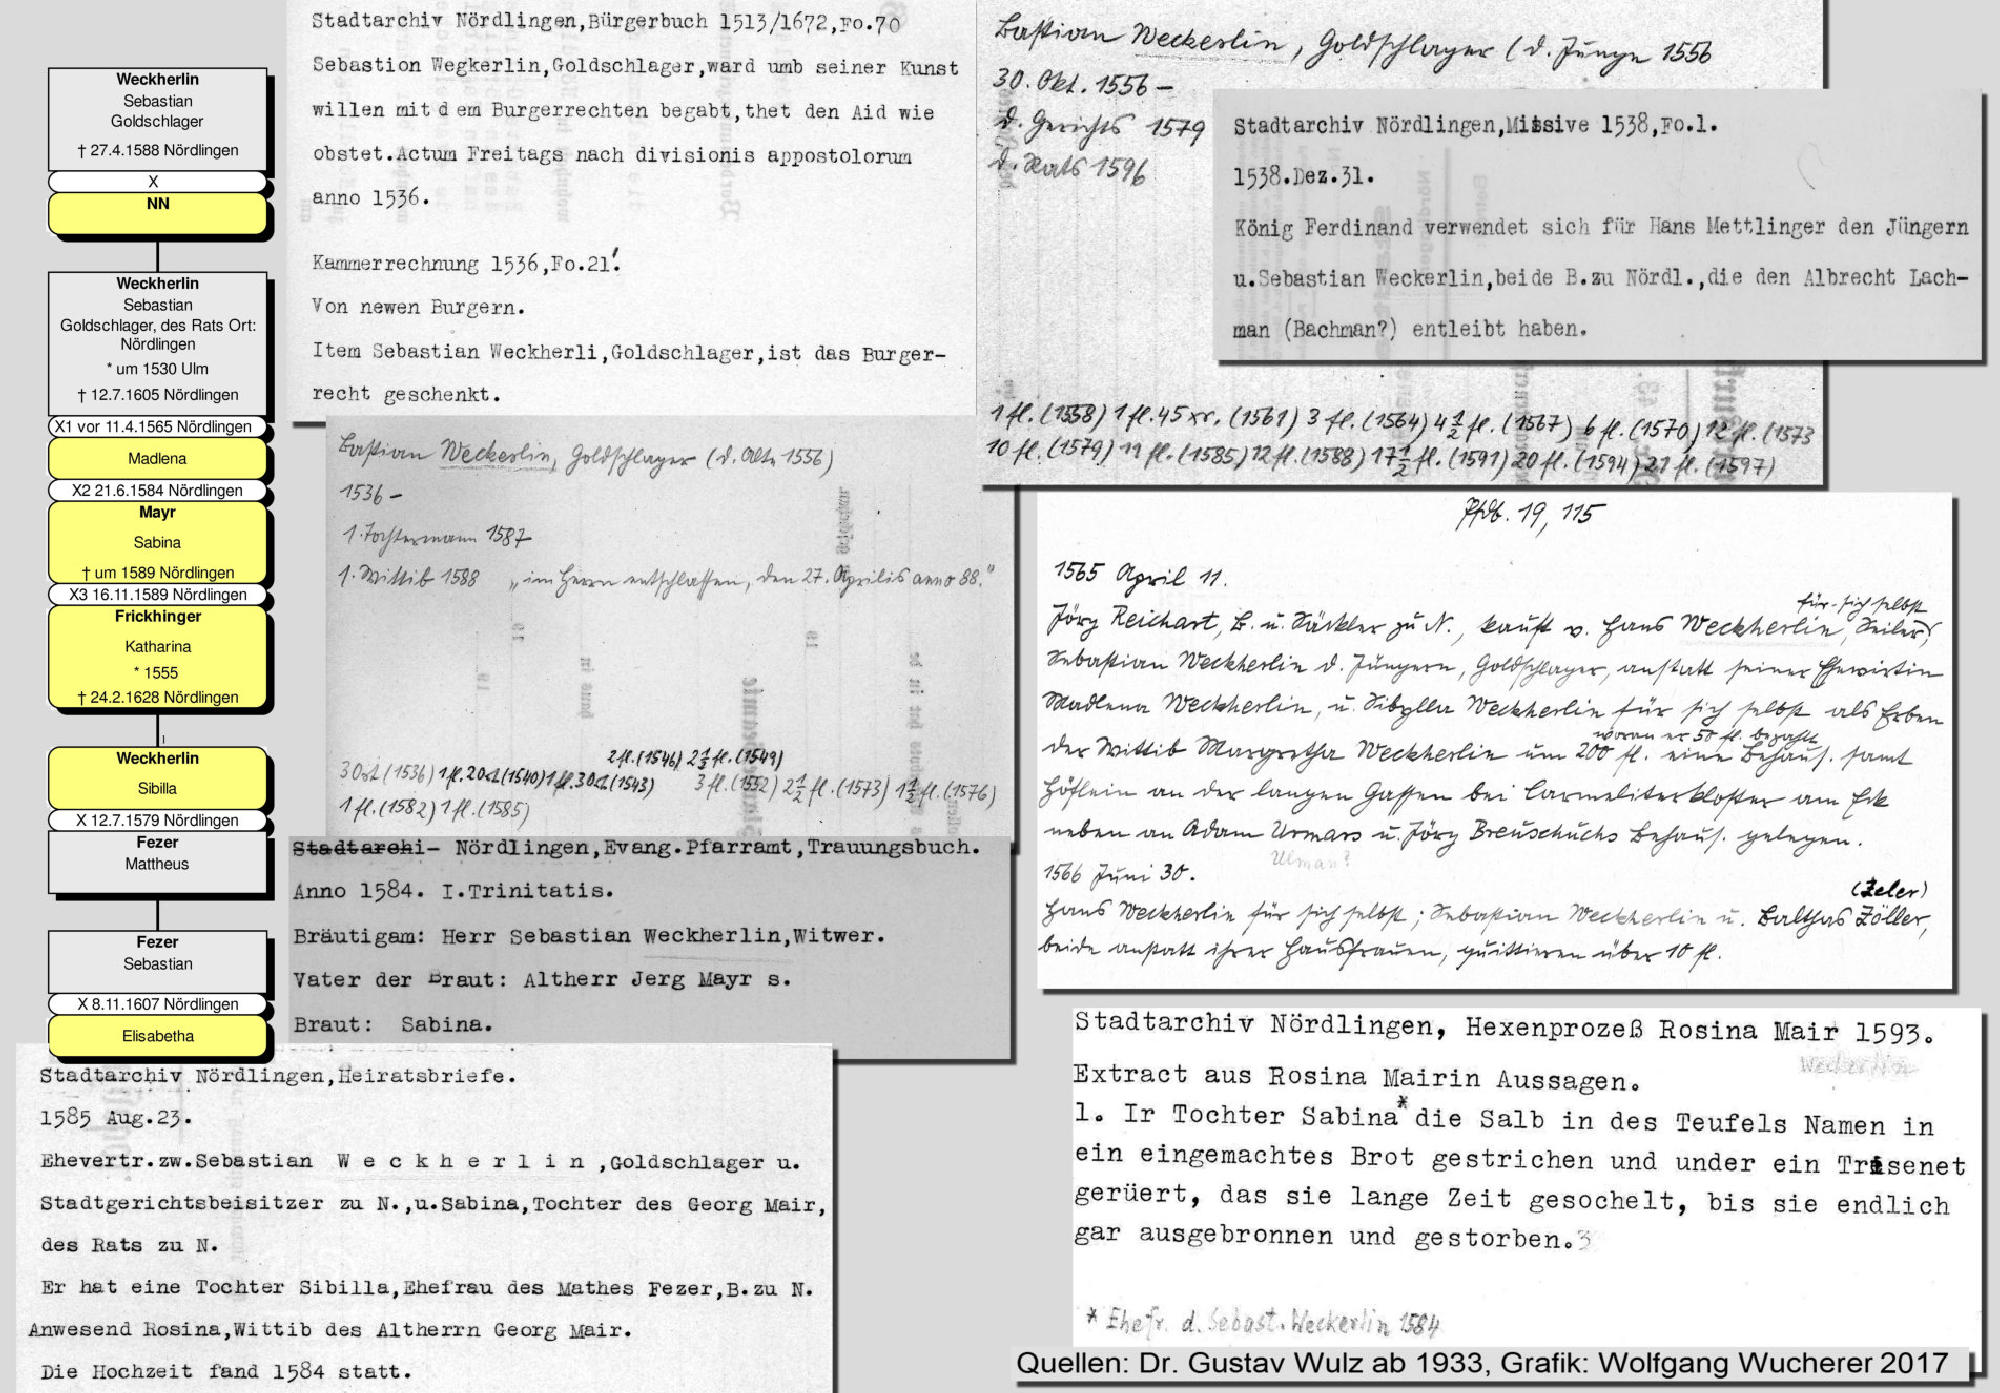 Weckherlin
Sebastian
Goldschlager
† 27.4.1588 Nördlingen
X
NN
Weckherlin
Sebastian
Goldschlager, des Rats Ort:
Nördlingen
* um 1530 Ulm
† 12.7.1605 Nördlingen
X1 vor 11.4.1565 Nördlingen
Madlena
X2 21.6.1584 Nördlingen
Mayr
Sabina
† um 1589 Nördlingen
X3 16.11.1589 Nördlingen
Frickhinger
Katharina
* 1555
† 24.2.1628 Nördlingen
Weckherlin
Sibilla
X 12.7.1579 Nördlingen
Fezer
Mattheus
Fezer
Sebastian
X 8.11.1607 Nördlingen
Elisabetha
Stadtarchiv Nördlingen,Bürgerbuch 1513/1672,Fo.70
Sebastion Wegkerlin,Goldschlager,ward umb seiner Kunst
willen mit dem Burgerrechten begabt,thet den Aid wie
obstet.Actum Freitags nach divisionis appostolorum
anno 1536.
Kammerrechnung 1536,Fo.21'.
Von newen Burgern.
Item Sebastian Weckherli,Goldschlager,ist das Burger-
recht geschenkt.
Bastian Weckerlin, Goldschlager (d. Junge 1556
30. Okt. 1556 –
d. Gerichts 1579
d. Rats 1596
1 fl. (1558) 1 fl. 45 xr. (1561) 3 fl. (1564) 4 1/2 fl. (1567) 6 fl. (1570) 12 fl. (1573
10 fl. (1579) 19 fl. (1585) 12 fl. (1588) 17 1/2 fl. (1591) 20 fl. (1594) 21 fl. (1597)
Stadtarchiv Nördlingen,Missive 1538,Fo.1.
1538.Dez.31.
König Ferdinand verwendet sich für Hans Mettlinger den Jüngern
u.Sebastian Weckerlin,beide B.zu Nördl.,die den Albrecht Lach-
man (Bachman?) entleibt haben.
Bastian Weckerlin, Goldschlager (d. Alte 1556)
1536 –
1. Tochtermann 1587
1. Wittib 1588 „im Herrn entschlaffen, den 27. Aprilis anno 88."
2 fl. (1546) 2 1/2 fl. (1549)
3 Ort (1536) 1 fl. 2 Ort (1540) 1 fl. 3 Ort (1543) 3 fl. (1552) 2 1/2 fl. (1573) 1 1/2 fl. (1576)
1 fl. (1582) 1 fl. (1585)
Pfdb. 19, 115
1565 April 11.
für sich selbst
Jörg Reichart, B. u. Säckler zu N., kauft v. Hans Weckherlin, Seiler,
Sebastian Weckherlin d. Jüngern, Goldschlager, anstatt seiner Ehewirtin
Madlena Weckherlin, u. Sibylla Weckherlin für sich selbst als Erben
woran er 50 fl. bezahlt
der Wittib Margretha Weckherlin um 200 fl. eine Behaus. samt
Höflein an der langen Gassen bei Carmeliterkloster am Eck
neben an Adam Urmars u. Jörg Breuschuchs Behaus. gelegen.
Ulman?
1566 Juni 30.
(Zeler)
Hans Weckherlin für sich selbst; Sebastian Weckherlin u. Balthas Zöller,
beide anstatt ihrer Hausfrauen, quittieren über 10 fl.
Stadtarchi- Nördlingen,Evang.Pfarramt,Trauungsbuch.
Anno 1584. I.Trinitatis.
Bräutigam: Herr Sebastian Weckherlin,Witwer.
Vater der Braut: Altherr Jerg Mayr s.
Braut: Sabina.
Stadtarchiv Nördlingen,Heiratsbriefe.
1585 Aug.23.
Ehevertr.zw.Sebastian W e c k h e r l i n ,Goldschlager u.
Stadtgerichtsbeisitzer zu N.,u.Sabina,Tochter des Georg Mair,
des Rats zu N.
Er hat eine Tochter Sibilla,Ehefrau des Mathes Fezer,B.zu N.
Anwesend Rosina,Wittib des Altherrn Georg Mair.
Die Hochzeit fand 1584 statt.
Stadtarchiv Nördlingen, Hexenprozeß Rosina Mair 1593.
Weckerlin
Extract aus Rosina Mairin Aussagen.
1. Ir Tochter Sabina* die Salb in des Teufels Namen in
ein eingemachtes Brot gestrichen und under ein Trisenet
gerüert, das sie lange Zeit gesochelt, bis sie endlich
gar ausgebronnen und gestorben.3
* Ehefr. d. Sebast. Weckerlin 1584
Quellen: Dr. Gustav Wulz ab 1933, Grafik: Wolfgang Wucherer 2017